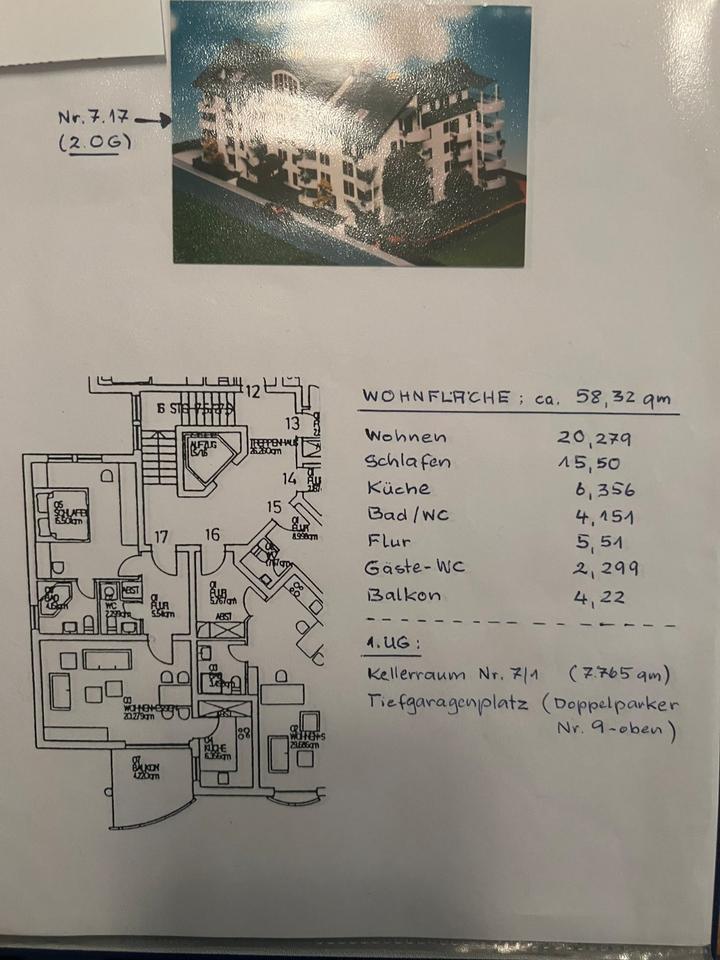 Nr. 7.17
(2.OG)
WOHNFLÄCHE: ca. 58,32 qm
Wohnen 20,279
Schlafen 15,50
Küche 6,356
Bad/WC 4,151
Flur 5,51
Gäste-WC 2,299
Balkon 4,22
1.UG:
Kellerraum Nr. 7/1 (7.765 qm)
Tiefgaragenplatz (Doppelparker
Nr. 9-oben)
12
13
14
15
16
17
AUFZUG
TREPPENHAUS
26.260qm
05
SCHLAFEN
15.50qm
ABST
WC
2.299qm
01
FLUR
5.51qm
01
FLUR
5.767qm
ABST
01
FLUR
8.998qm
03
WOHNEN+ESSEN
20.279qm
04
KÜCHE
6.356qm
07
BALKON
4.220qm
29.686qm